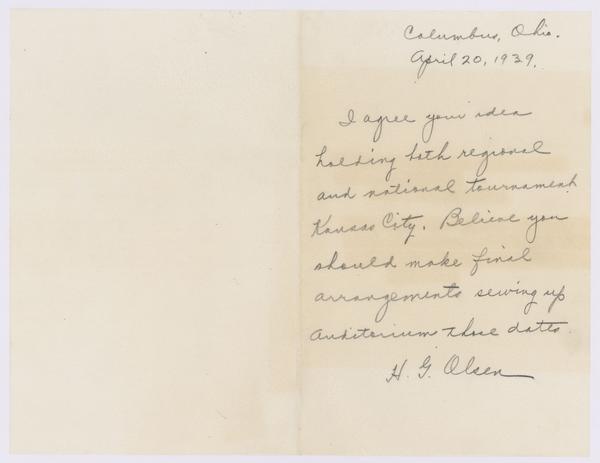 Columbus, Ohio.
April 20, 1939.
I agree your idea
holding both regional
and national tournament
Kansas City. Believe you
should make final
arrangements sewing up
auditorium those dates.
H. G. Olsen